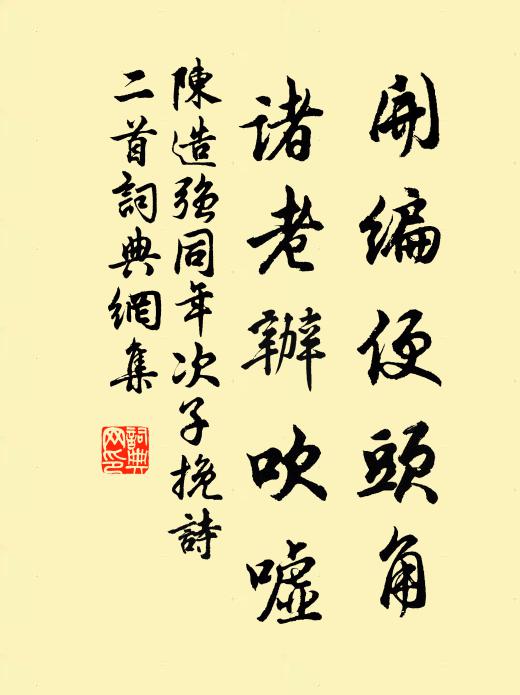 開編便頭角
諸老辦吹噓
陳造強同年次子挽詩
二首詞典網集
詞典
网印